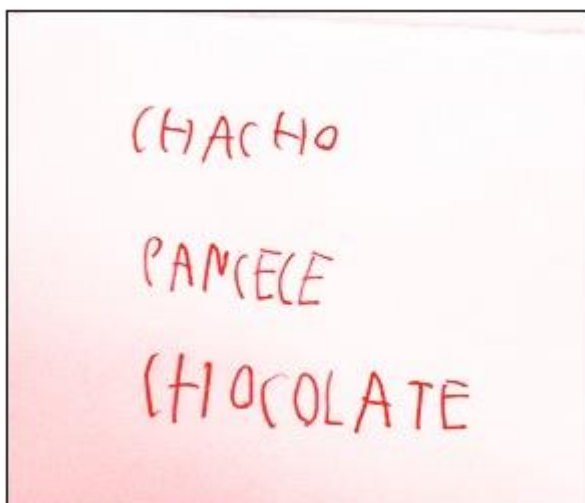 CHACHO
PANCECE
CHOCOLATE